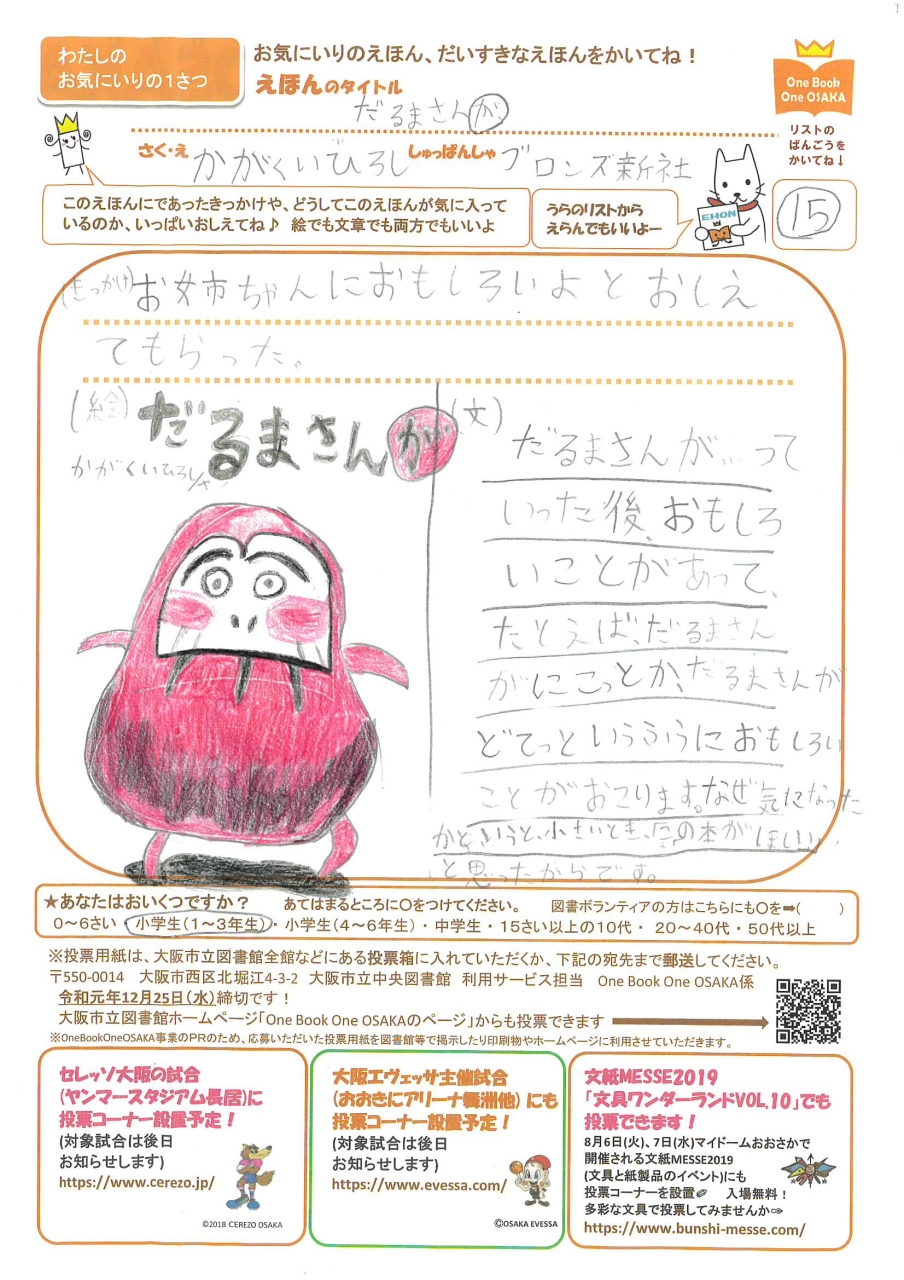 わたしの
お気にいりの1さつ
お気にいりのえほん、だいすきなえほんをかいてね！
えほんのタイトル
だるまさんが
One Book
One OSAKA
リストの
ばんごうを
かいてね↓
さく・え かがくいひろし しゅっぱんしゃ ブロンズ新社
このえほんにであったきっかけや、どうしてこのえほんが気に入って
いるのか、いっぱいおしえてね♪ 絵でも文章でも両方でもいいよ
うらのリストから
えらんでもいいよー
EHON
15
(きっかけ)お姉ちゃんにおもしろいよとおしえ
てもらった。
(絵)
だるまさんが
かがくいひろし/さく
(文)
だるまさんが…って
いった後、おもしろ
いことがあって、
たとえば、だるまさん
がにこっとか、だるまさんが
どてっというふうにおもしろい
ことがおこります。なぜ気になった
かというと、小さいとき、この本がほしい
と思ったからです。
★あなたはおいくつですか？ あてはまるところに〇をつけてください。 図書ボランティアの方はこちらにも〇を➡( )
0～6さい・小学生(1～3年生)・小学生(4～6年生)・中学生・15さい以上の10代・20～40代・50代以上
※投票用紙は、大阪市立図書館全館などにある投票箱に入れていただくか、下記の宛先まで郵送してください。
〒550-0014 大阪市西区北堀江4-3-2 大阪市立中央図書館 利用サービス担当 One Book One OSAKA係
令和元年12月25日(水)締切です！
大阪市立図書館ホームページ「One Book One OSAKAのページ」からも投票できます
※OneBookOneOSAKA事業のPRのため、応募いただいた投票用紙を図書館等で掲示したり印刷物やホームページに利用させていただきます。
セレッソ大阪の試合
(ヤンマースタジアム長居)に
投票コーナー設置予定！
(対象試合は後日
お知らせします)
https://www.cerezo.jp/
©2018 CEREZO OSAKA
大阪エヴェッサ主催試合
(おおきにアリーナ舞洲他)にも
投票コーナー設置予定！
(対象試合は後日
お知らせします)
https://www.evessa.com/
©OSAKA EVESSA
文紙MESSE2019
「文具ワンダーランドVOL.10」でも
投票できます！
8月6日(火)、7日(水)マイドームおおさかで
開催される文紙MESSE2019
(文具と紙製品のイベント)にも
投票コーナーを設置 入場無料！
多彩な文具で投票してみませんか⇨
https://www.bunshi-messe.com/